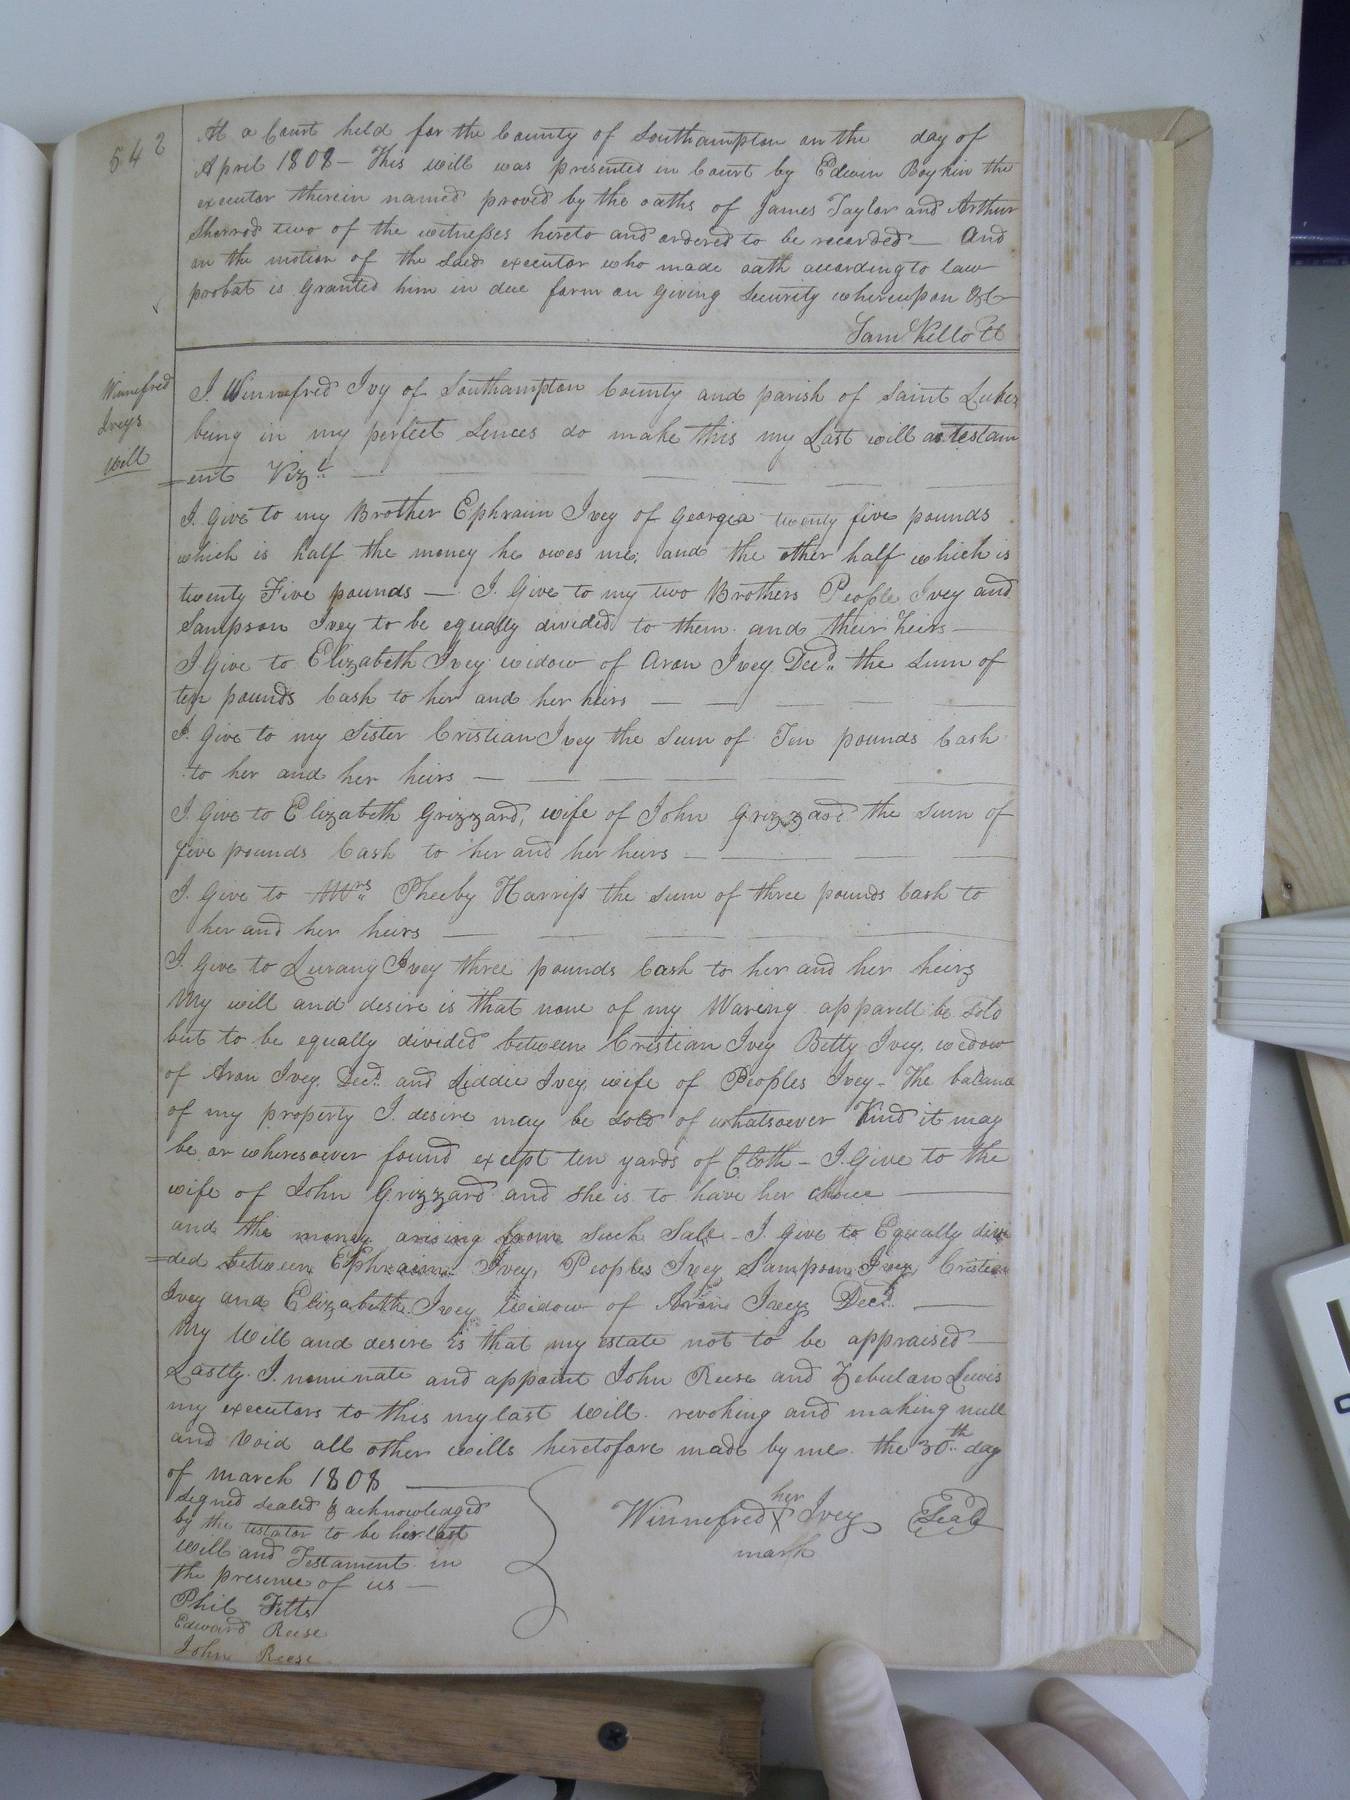 542
At a Court held for the County of Southampton on the day of
April 1808 - This will was presented in Court by Edwin Boykin the
executor therein named proved by the oaths of James Taylor and Arthur
Sherrod two of the witnesses hereto and ordered to be recorded - And
on the motion of the said executor who made oath according to law
probat is granted him in due form on giving security whereupon &c
Saml Kello Ct
Winnefred
Iveys
Will
I. Winnefred Ivy of Southampton County and parish of Saint Lukes
being in my perfect Sences do make this my Last will as testam
=ent Vizt.
I. Give to my Brother Ephraim Ivey of Georgia twenty five pounds
which is half the money he owes me, and the other half which is
twenty Five pounds - I. Give to my two Brothers People Ivey and
Sampson Ivey to be equally divided to them and their heirs -
I Give to Elizabeth Ivey widow of Aron Ivey Decd. the Sum of
ten pounds Cash to her and her heirs
I. Give to my Sister Cristian Ivey the Sum of Ten pounds Cash
to her and her heirs -
I. Give to Elizabeth Grizzard, wife of John Grizzard the Sum of
five pounds Cash to her and her heirs -
I. Give to Mrs. Pheeby Harriss the Sum of three pounds Cash to
her and her heirs
I. Give to Lurany Ivey three pounds Cash to her and her heirs
My will and desire is that none of my Waring apparell be sold
but to be equally divided between Cristian Ivey Betty Ivey, widow
of Aron Ivey Decd. and Liddie Ivey, wife of Peoples Ivey - The balance
of my property I. desire may be sold of whatsoever Kind it may
be or wheresoever found except ten yards of Cloth - I. Give to the
wife of John Grizzard and she is to have her choice
and the money arising from such Sale - I. Give to Equally divi
=ded between Ephraim Ivey, Peoples Ivey Sampson Ivey, Cristian
Ivey and Elizabeth Ivey Widow of Aron Ivey Decd.
My Will and desire is that my estate not to be appraised
Lastly. I. nominate and appoint John Reese and Zebulan Lewis
my executors to this my last Will. revoking and making null
and Void all other wills heretofore made by me. the 30th day
of march 1808
Signed Sealed & acknowledged
by the testator to be her last
Will and Testament in
the presence of us -
Phil Fitts
Edward Reese
John Reese
her
Winnefred X Ivey Seal
mark